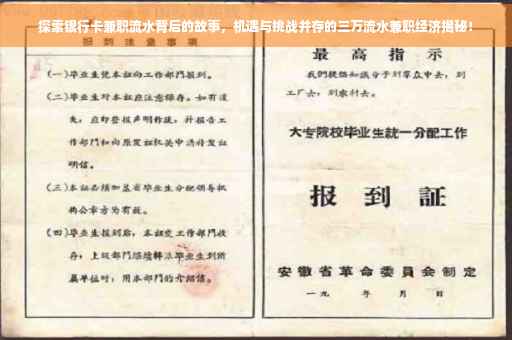 探索银行卡兼职流水背后的故事，机遇与挑战并存的三万流水兼职经济揭秘！
报到注意事项
(一)毕业生凭本证向工作部门报到。
(二)毕业生对本证应注意保存。如有遗
失，应即登报声明作废，并报告工
作部门和向原发证机关申请补发证
明信。
(三)本证必须加盖省毕业生分配领导机
构公章方为有效。
(四)毕业生报到后，本证交工作部门收
存；上级部门继续转派毕业生到所
属单位时，用本部门的介绍信。
最高指示
我们提倡知识分子到群众中去，到
工厂去，到农村去。
大专院校毕业生統一分配工作
报到証
安徽省革命委員会制定
一九 年 月 日